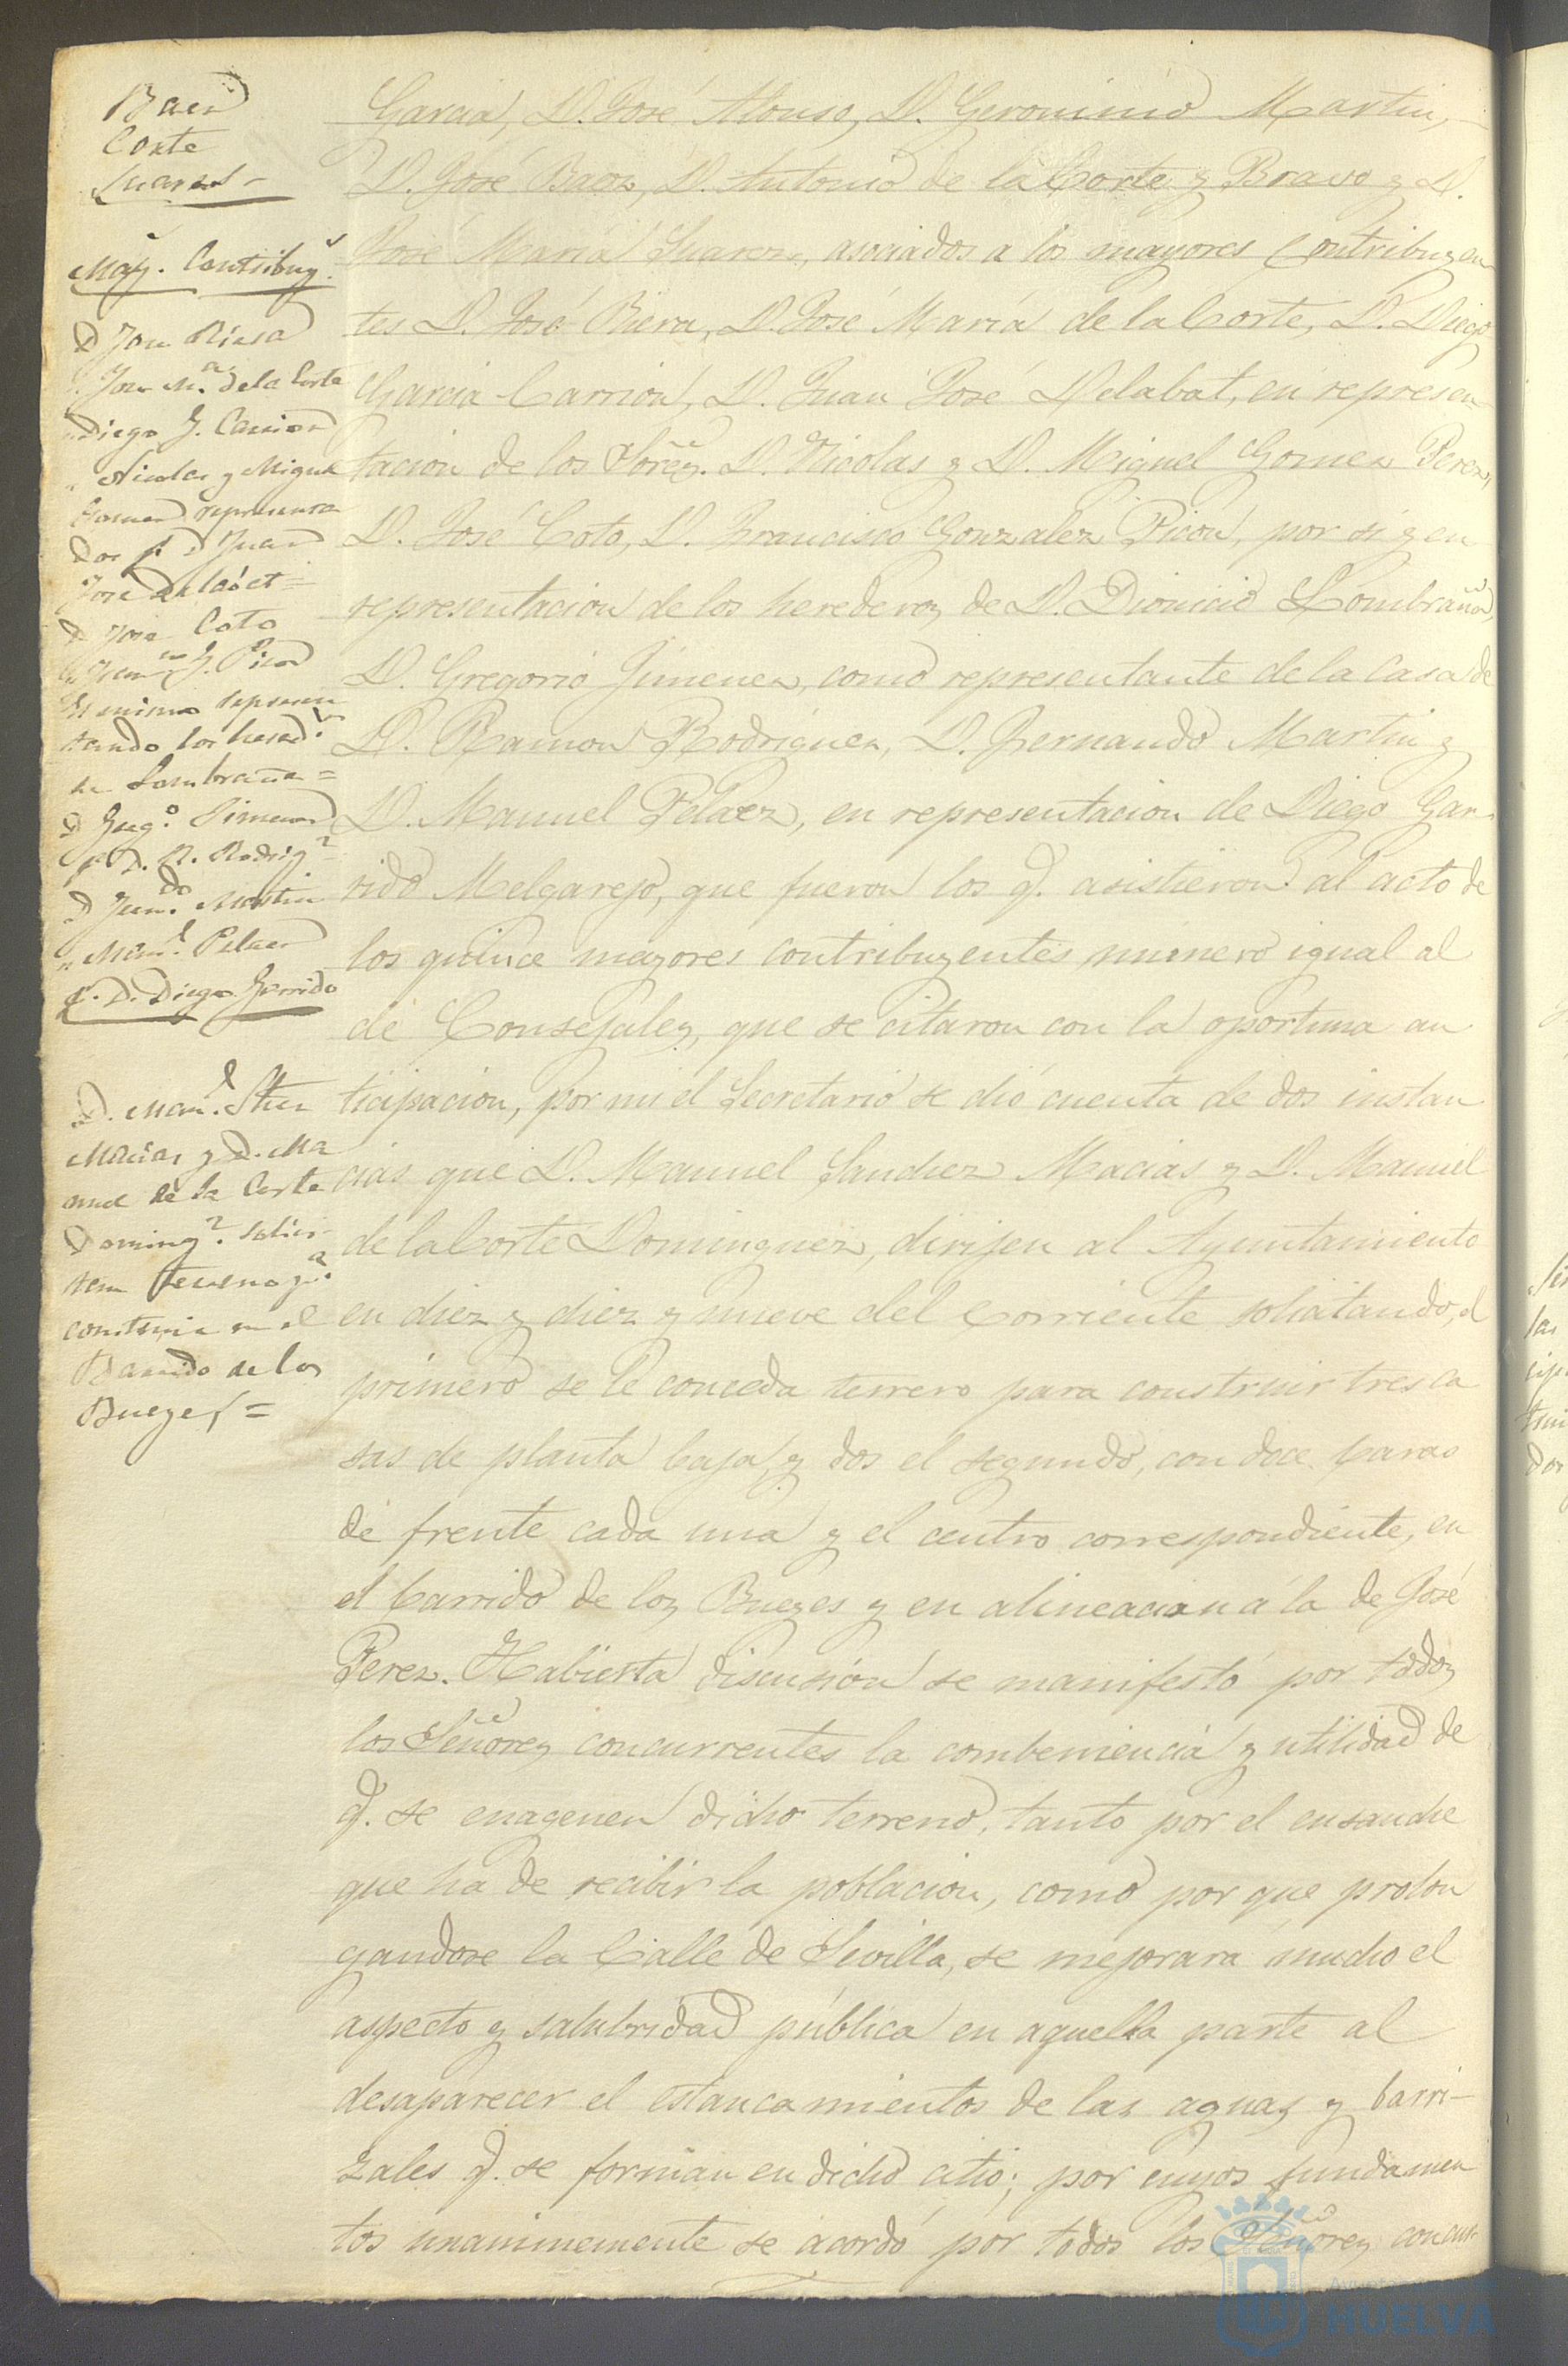 Baez
Corte
Suarez
May.s Contribuy.s
D Jose Riera
" Jose M.a de la Corte
" Diego G. Carrion
" Nicolas y Miguel
Gomez representa
dos p.r D Juan
Jose Delabat =
D Jose Coto
" Fran.co G. Picon
El mismo represen
tando los hered.s
de Lombraña =
D Greg.o Jimenez
p.r D. R. Rodrig.z
D Fern.do Martin
" Man.l Pelaez
p.r D. Diego Garrido
D. Man.l Shez
Macias y D. Ma
nuel de la Corte
Doming.z solici-
tan terreno p.a
construir en el
Barrido de los
Bueyes =
Garcia, D. José Alonso, D. Geronimo Martin,
D. José Baez, D. Antonio de la Corte y Bravo y D.
José María Suarez, asociados a los mayores Contribuyen
tes D. José Riera, D. José María de la Corte, D. Diego
Garcia Carrion, D. Juan Jose Delabat, en represen
tacion de los Sores. D. Nicolas y D. Miguel Gomez Perez,
D. Jose Coto, D. Francisco Gonzalez Picon, por si y en
representacion de los herederos de D. Dionicio Lombraña,
D. Gregorio Jimenez, como representante de la Casa de
D. Ramon Rodriguez, D. Fernando Martin y
D. Manuel Pelaez, en representacion de Diego Gar
rido Melgarejo, que fueron los q. asistieron al acto de
los quince mayores contribuyentes, número igual al
de Consejales, que se citaron con la oportuna an
ticipacion, por mi el Secretario se dió cuenta de dos instan
cias que D. Manuel Sanchez Macias y D. Manuel
de la Corte Dominguez, dirijen al Ayuntamiento
en diez y diez y nueve del Corriente solicitando, el
primero se le conceda terreno para construir tres ca
sas de planta baja, y dos el segundo, con doce baras
de frente cada una y el centro correspondiente, en
el barrido de los Bueyes y en alineacion á la de José
Perez. Habierta discusión se manifestó por todos
los Señores concurrentes la combeniencia y utilidad de
q. se enagenen dicho terreno, tanto por el ensanche
que ha de recibir la poblacion, como por que prolon
gandose la Calle de Sevilla, se mejorara mucho el
aspecto y salubridad pública en aquella parte al
desaparecer el estancamientos de las aguas y barri-
zales q. se forman en dicho citio; por cuyos fundamen
tos unanimemente se acordó por todos los Señores concur-
HUELVA